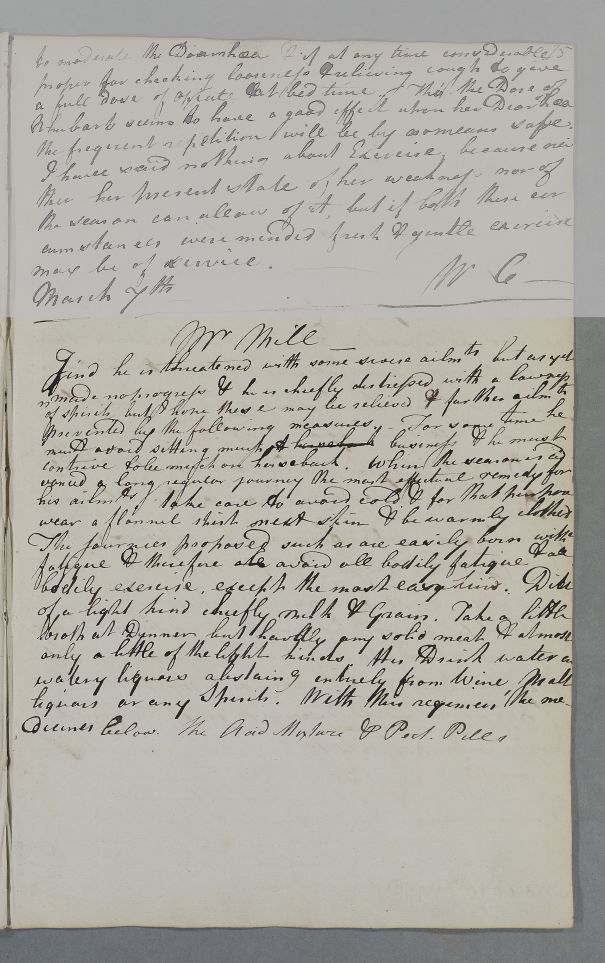 to moderate the Diarrhoea & if at any time considerable 5
proper for checking looseness & relieving cough to give
a full dose of opiate at bed time. Tho' the Dose of
Rhubarb seems to have a good effect upon her Diarrhoea
the frequent repetition will be by no means safe.
I have said nothing about Exercise, because nei
ther her present state of her weakness nor of
the season can allow of it, but if both these cir
cumstances were mended fresh & gentle exercise
may be of service.
March 7th W C
Mr Mill
Find he is threatened with some severe ailmts but as yet
made no progress & he is chiefly distressed with a lowness
of spirits, but I hope these may be relieved & further ailmts
prevented by the following measures. For some time he
must avoid sitting much business & he must
contrive to be much on horseback. When the season is ad
vanced a long regular journey the most effectual remedy for
his ailmts. take care to avoid cold & for that purpose
wear a flannel shirt next skin & be warmly clothed
The journies proposed such as are easily born witht
fatigue & therefore avoid all bodily fatigue & all
bodily exercise, except the most easy kind. Diet
of a light kind chiefly milk & Grain. Take a little
broth at Dinner but hardly any solid meat & at most
only a little of the light kinds. His Drink water or
watery liquors abstaing entirely from Wine Malt
liquors or any Spirits. With this regimen the me-
dicines below. The Acid Mixture & Pect. Pills